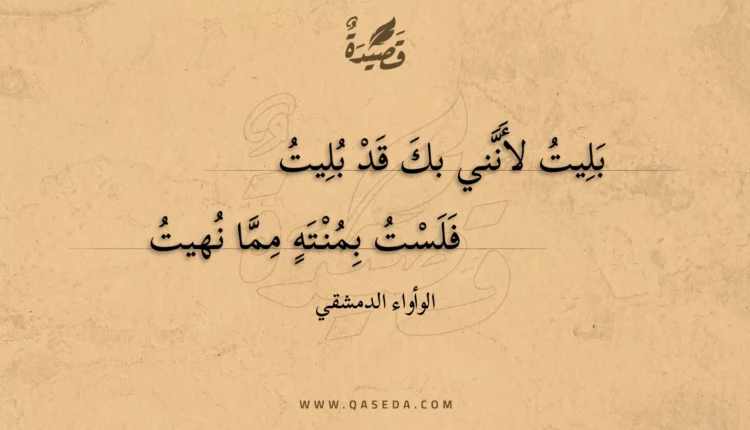 قَصِيدَةٌ
بَلِيتُ لأَنَّني بكَ قَدْ بُلِيتُ
فَلَسْتُ بِمُنْتَهٍ مِمَّا نُهيتُ
الوأواء الدمشقي
WWW.QASEDA.COM